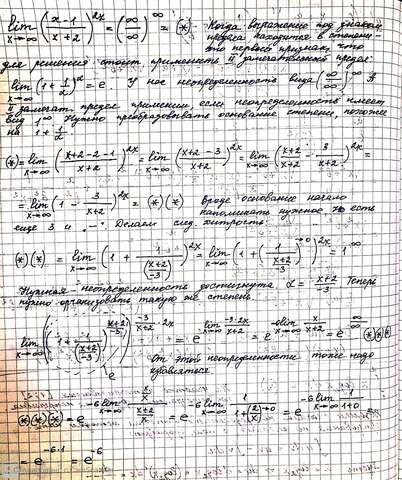 lim x→∞ ((x-1)/(x+2))^2x = (∞/∞)^∞ = (*) - Когда выражение под знаком
предела находится в степени -
это первый признак, что
для решения стоит применить II замечательный предел
lim x→∞ (1+1/α)^α = e. У нас неопределенность вида (∞/∞)^∞, а
II замечат. предел применим, если неопределенность имеет
вид 1^∞. Нужно преобразовать основание степени, похожее
на 1+1/α
(*) = lim x→∞ ((x+2-2-1)/(x+2))^2x = lim x→∞ ((x+2-3)/(x+2))^2x = lim x→∞ ((x+2)/(x+2) - 3/(x+2))^2x =
= lim x→∞ (1 - 3/(x+2))^2x = (*)(*) Вроде основание начало
напоминать нужное, но есть
еще 3 и "-". Делаем след. хитрость:
(*)(*) = lim x→∞ (1 + 1/((x+2)/(-3)))^2x = lim x→∞ (1 + (1/((x+2)/-3))→0)^2x = 1^∞
Нужная неопределенность достигнута α = -(x+2)/-3 Теперь
нужно организовать такую же степень
lim x→∞ ((1 + 1/((x+2)/-3))^((x+2)/-3))^(-3/(x+2) · 2x) = e^(lim x→∞ -3·2x/(x+2)) = e^(-6 lim x→∞ x/(x+2)) = e^(∞/∞) (*)(*)(*)
e
От этой неопределенности тоже надо
избавиться.
(*)(*)(*) = e^(-6 lim x→∞ (x/x)/((x+2)/x)) = e^(-6 lim x→∞ 1/(1+(2/x)→0)) = e^(-6 lim x→∞ 1/(1+0)) =
= e^(-6·1) = e^-6